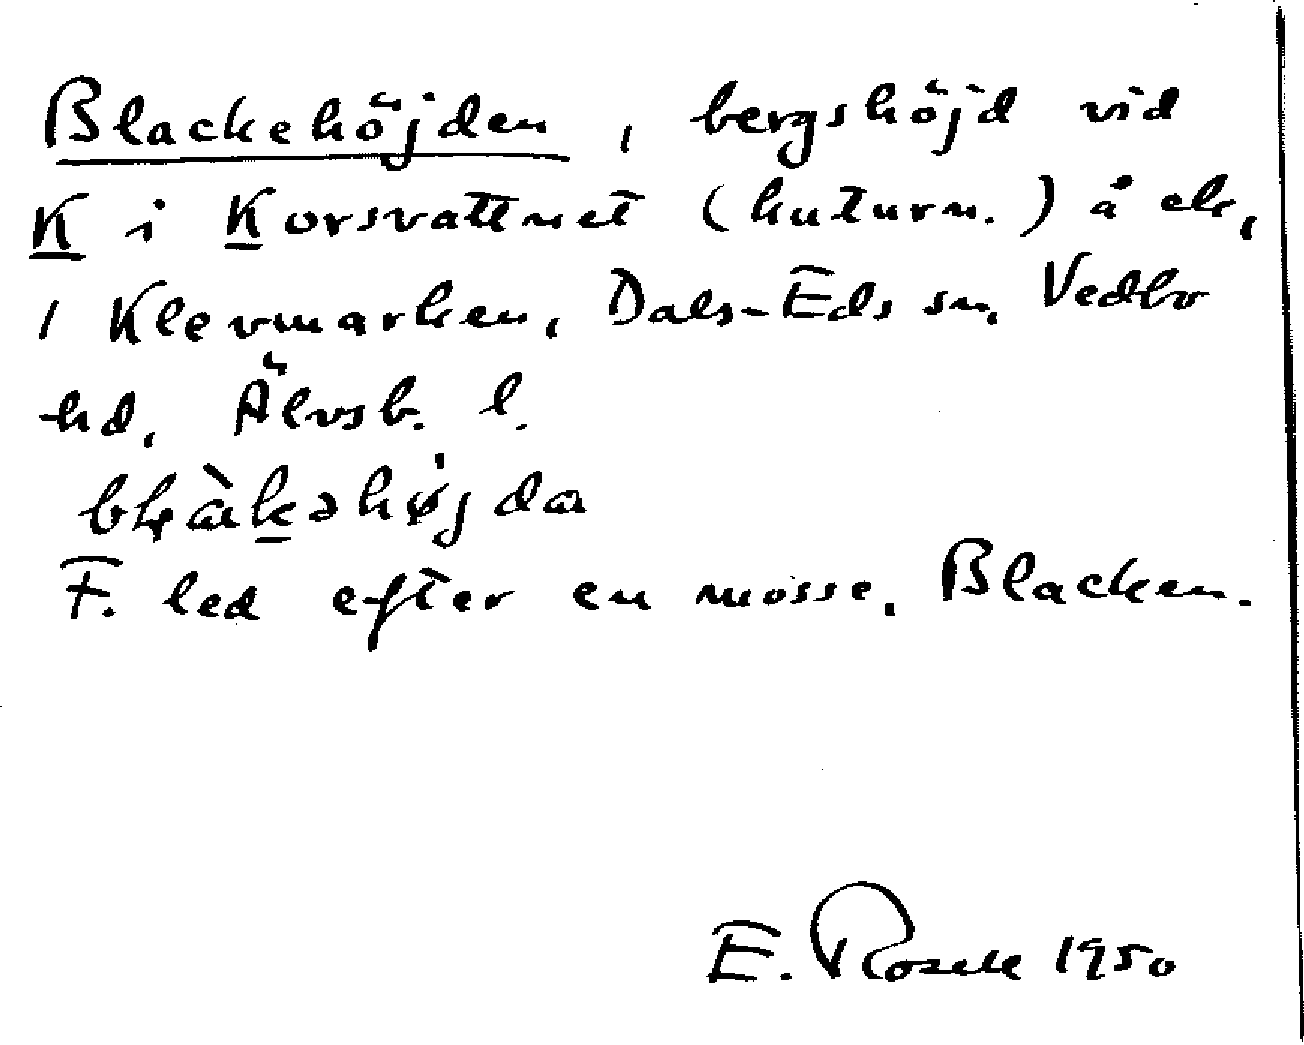 Blackehöjden, bergshöjd vid
K i Korsvattnet (kuturn.) å ek,
i Klevmarken, Dals-Eds sn, Vedbo
hd, Älvsb. l.
F. led efter en mosse, Blacken.
E. Rosell 1950